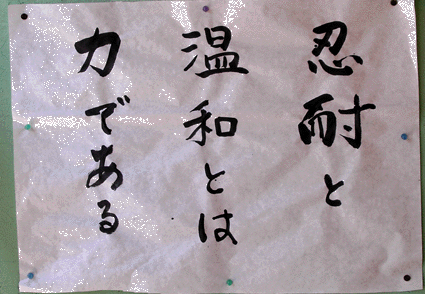 忍耐と
温和とは
力である